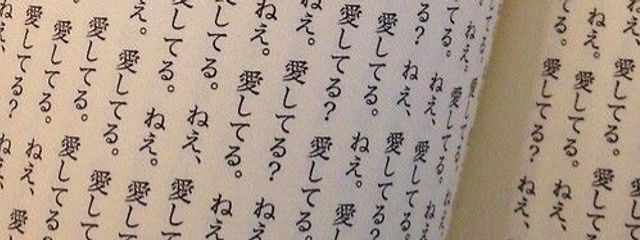 愛してる。愛して
ねえ。愛してる。ねえ、
てる。愛してる?ねえ、
てる。愛してる。ねえ
ねえ。愛してる。ねえ
てる。ねえ、愛してる。
る?ねえ、愛してる?
愛してる。ねえ。愛し
愛してる。愛してる
ねえ。愛してる?ねえ
ねえ。愛してる。ねえ
してる。ねえ、愛して
愛してる。ねえ。愛して
え。愛してる。愛して
愛してる。愛してる
愛してる。ねえ、愛
愛してる?ねえ、